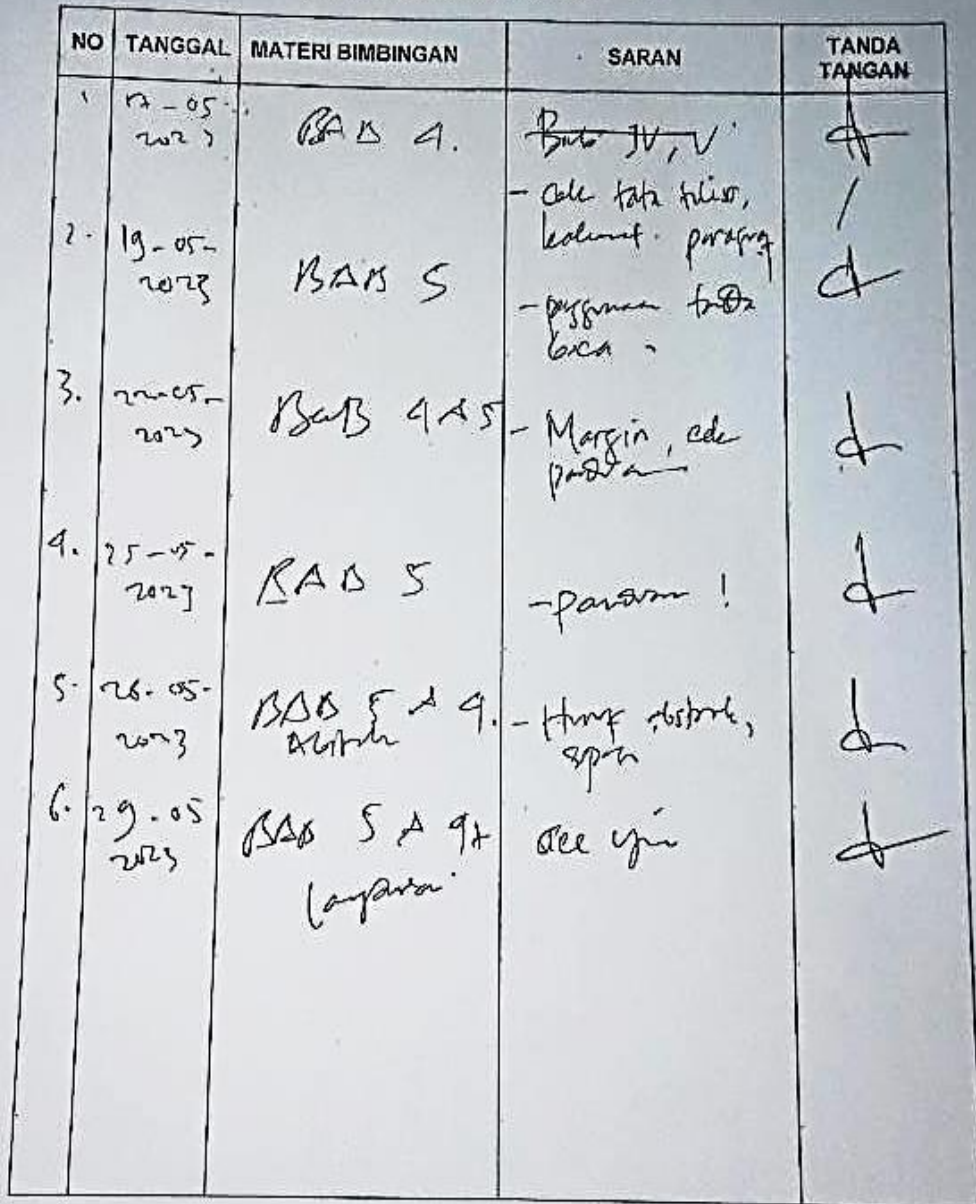 NO TANGGAL MATERI BIMBINGAN SARAN TANDA TANGAN
1 17-05-2023 BAB 4. Bab IV, V
- Cek tata tulis,
kalimat. paragraf
2. 19-05-2023 BAB 5
- penggunaan tanda
baca
3. 22-05-2023 BAB 4 & 5 - Margin, cek
4. 25-05-2023 BAB 5 - !
5. 26-05-2023 BAB 5 & 4. - abstrak,
Abstrak
6. 29-05 2023 BAB 5 & 4 & acc
Lampiran